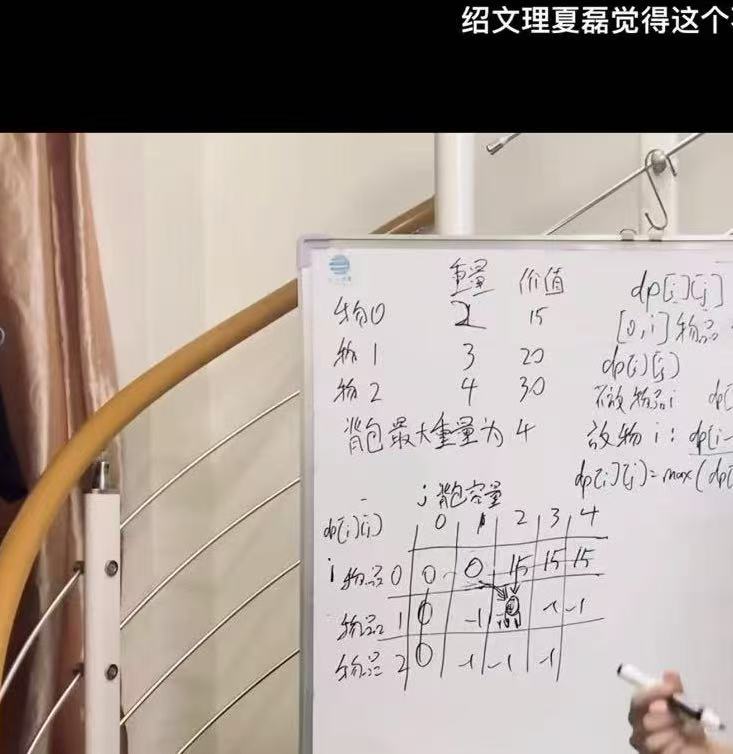 绍文理夏磊觉得这个
重量 价值
物0 2 15
物1 3 20
物2 4 30
背包最大重量为4
dp[i][j]
[0,i]物品
dp[i][j]
不放物品i dp[
放物i:dp[i-
dp[i][j]=max(dp[
j背包容量
dp[i][j] 0 1 2 3 4
i 物品0 0 0 15 15 15
物品1 0 -1 -1 -1
物品2 0 -1 -1 -1